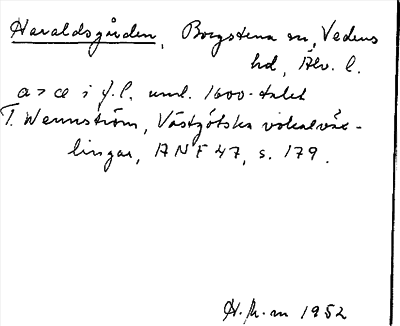 Haraldsgården, Borgstena sn, Vedens
hd, Älv. l.
a > æ i f.l. uml. 1600-talet
T. Wennström, Västgötska vokalväx-
lingar, ANF 47, s. 179.
H. m 1952